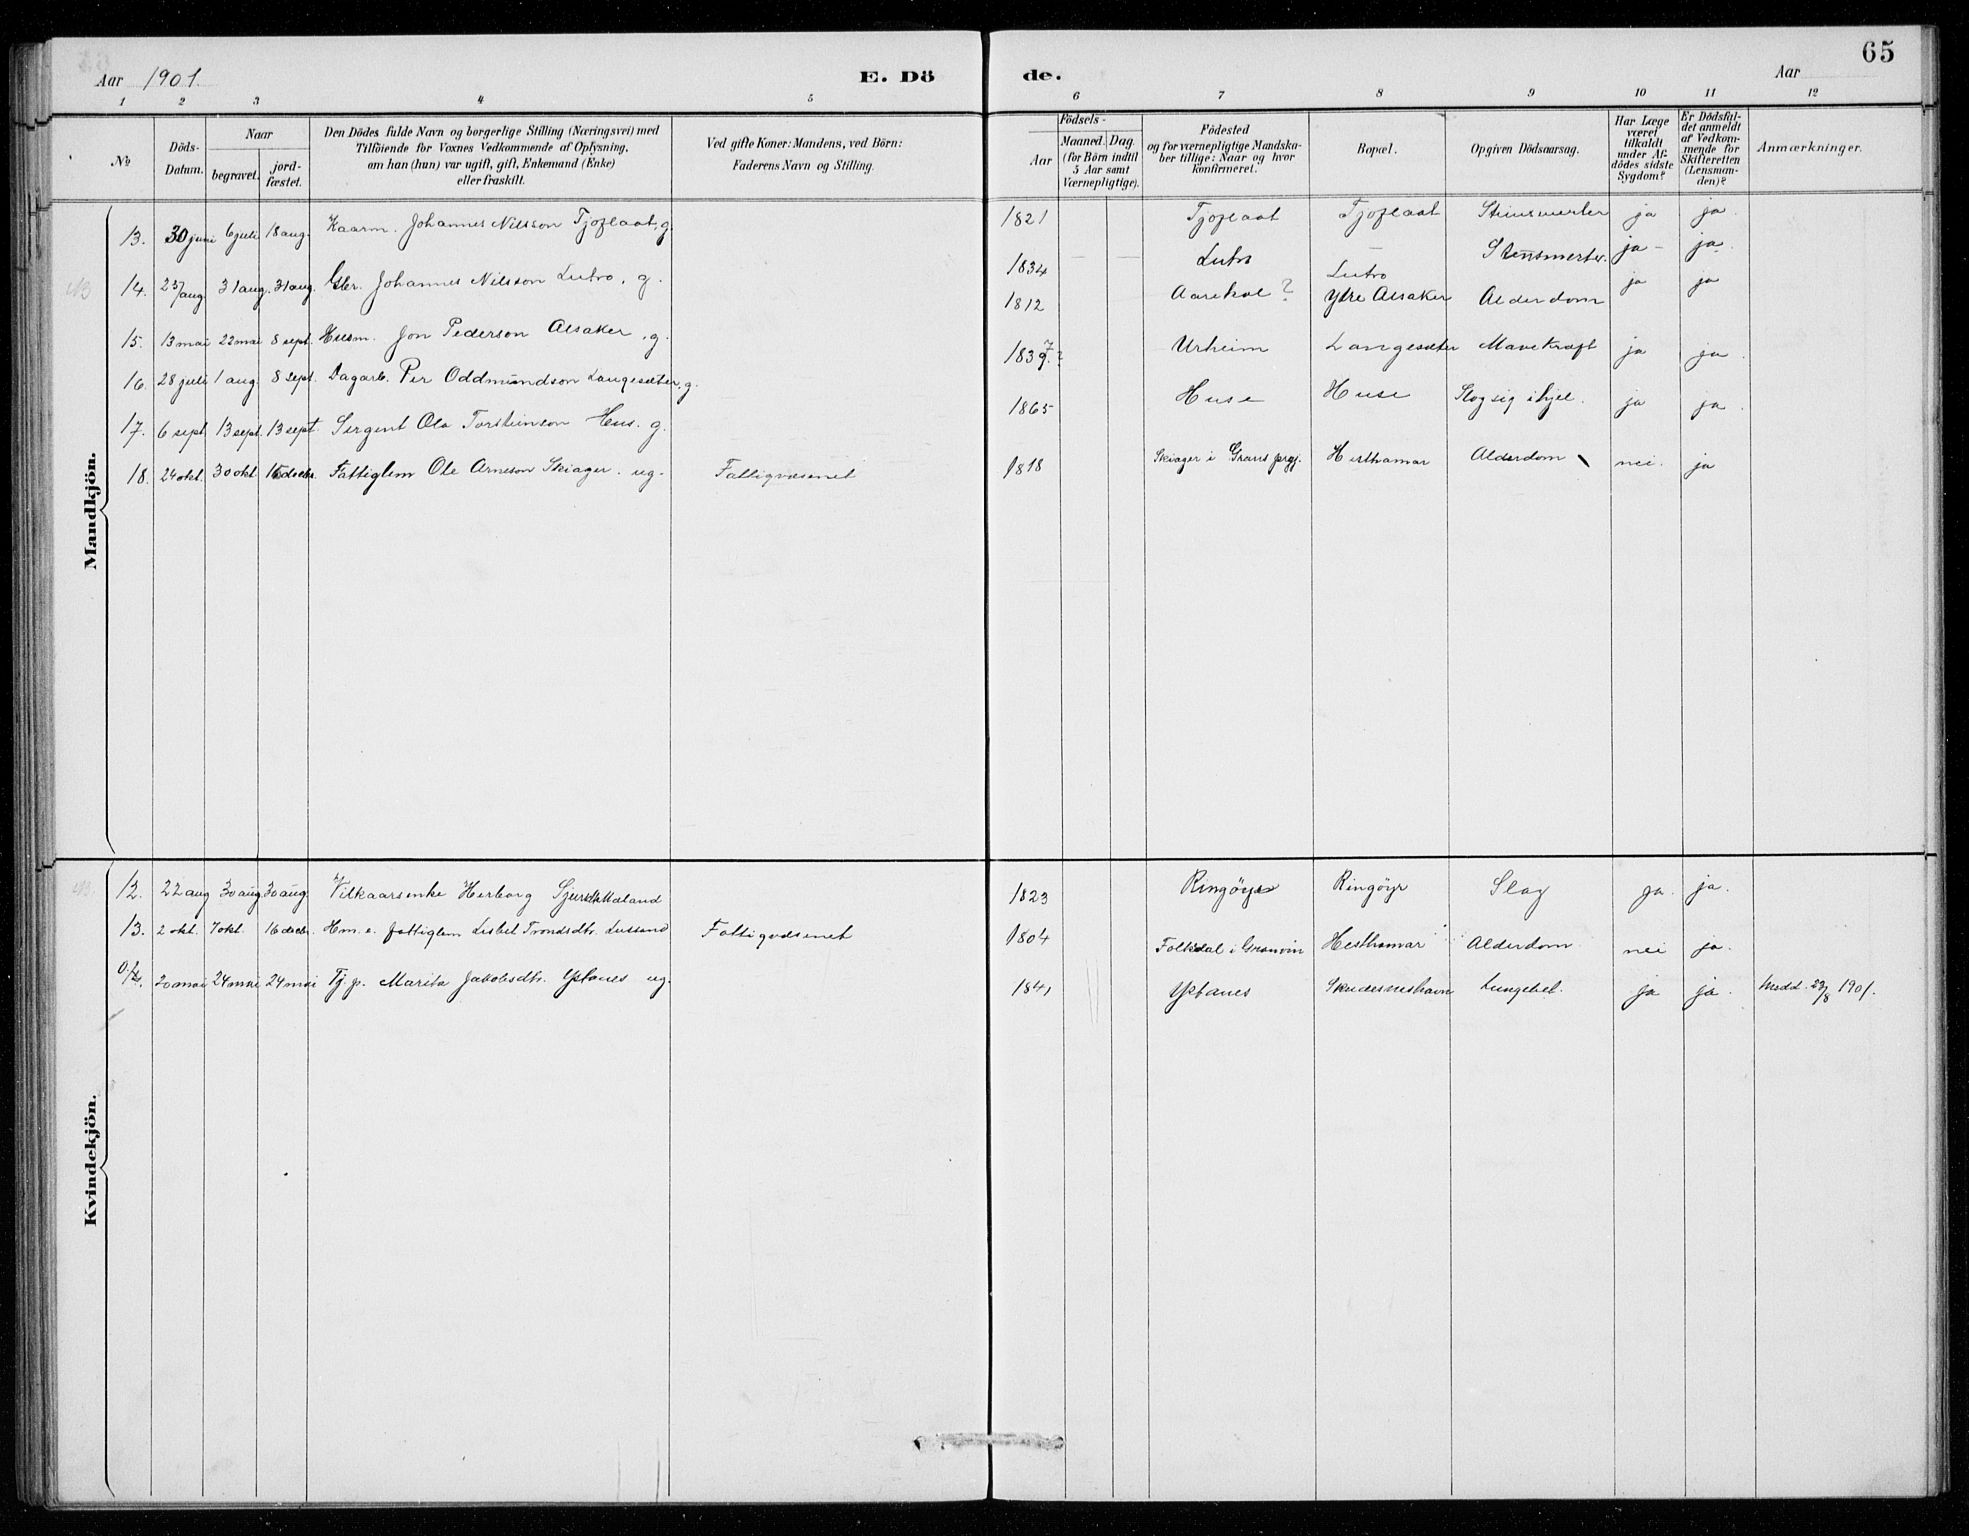 65
Aar 1901. E. Dö de. Aar
1 2 3 4 5 6 7 8 9 10 11 12
No
Döds-Datum.
Naar
begravet.
jord-fæstet.
Den Dödes fulde Navn og borgerlige Stilling (Næringsvei) med
Tilföiende for Voxnes Vedkommende af Oplysning,
om han (hun) var ugift, gift, Enkemand (Enke)
eller fraskilt.
Ved gifte Koner: Mandens, ved Börn:
Faderens Navn og Stilling.
Födsels-
Aar
Maaned. Dag.
(for Börn indtil
5 Aar samt
Værnepligtige).
Födested
og for værnepligtige Mandska-
ber tillige: Naar og hvor
konfirmeret.
Bopæl.
Opgiven Dödsaarsag.
Har Læge
været
tilkaldt
under Af-
dödes sidste
Sygdom?
Er Dödsfal-
det anmeldt
af Vedkom-
mende for
Skifteretten
(Lensman-
den)?
Anmærkninger.
Mandkjön.
13. 30 juni 6 juli 18 aug. Kaarm. Johannes Nilsson Tjoflaat, g. 1821 Tjoflaat Tjoflaat Stensmerter ja ja.
NB 14. 25/aug 31 aug. 31 aug. Gbr. Johannes Nilsson Lutro, g. 1834 Lutro Lutro Stensmerter. ja ja.
15. 13 mai 22 mai 8 sept. Husm. Jon Pederson Alsaker, g. 1812 Aarekol? Ytre Alsaker Alderdom ja ja
16. 28 juli 1 aug. 8 sept. Dagarb. Per Oddmundson Langesæter, g. 1839? 7 Urheim Langesæter Mavekræft ja ja.
17. 6 sept 13 sept. 13 sept. Sergent Ola Torsteinson Hus. g. 1865 Huse Huse Slog sig ihjel. ja ja.
18. 24 okt. 30 okt. 16 decbr. Fattiglem Ole Arneson Skiager. ug. Fattigvæsenet 1818 Skiager i Grans prgj. Hesthamar Alderdom nei. ja
Kvindekjön.
NB. 12. 22 aug 30 aug. 30 aug. Vilkaarsenke Herborg Sjursdtr. Maland 1823 Ringöyr Ringöyr Slag ja. ja.
13. 2 okt. 7 okt. 16 decbr. Hm. e. fattiglem Lisbet Trondsdtr. Lussand Fattigvæsenet 1804 Folkedal i Granvin Hesthamar Alderdom nei ja.
20 mai 24 mai 24 mai Tj. p. Marita Jakobsdtr. Ystanes ug. 1841 Ystanes Skudesneshavn Lungebet. ja ja. Medd. 23/8 1901.